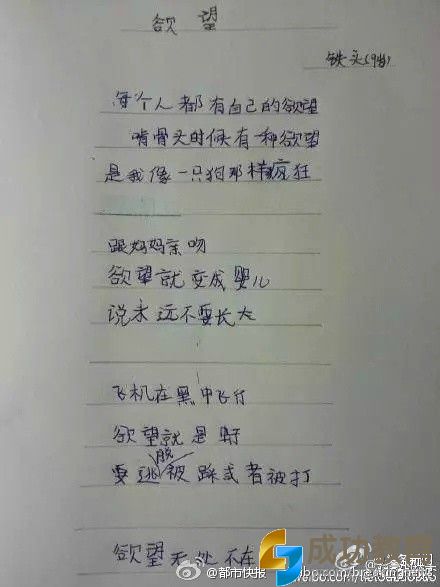 欲望
铁头(9岁)
每个人都有自己的欲望
啃骨头时候有一种欲望
是我像一只狗那样疯狂
跟妈妈亲吻
欲望就变成婴儿
说永远不要长大
飞机在黑中飞行
欲望就是
要逃脱被踩或者被打
欲望无处不在
@都市快报
成功教育